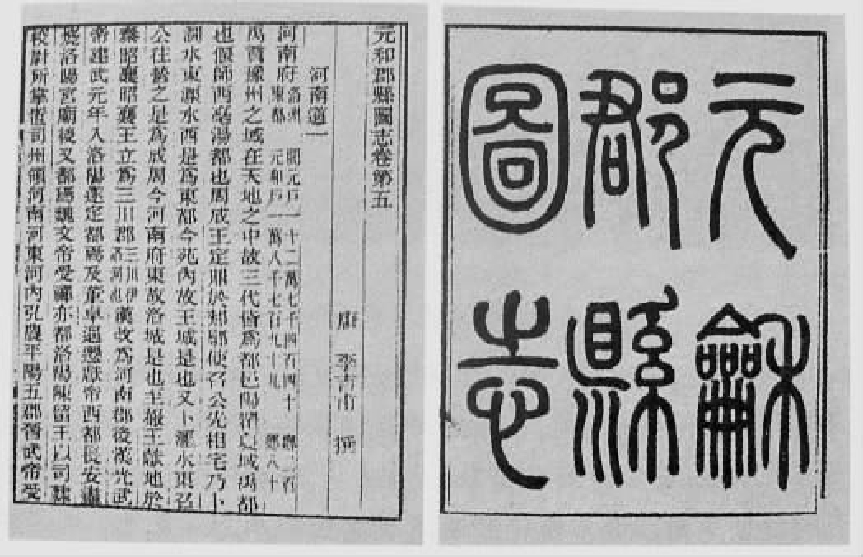 元龢
郡縣
圖志
元和郡縣圖志卷第五
唐 李吉甫 撰
河南道一
河南府 洛州 東都 開元戶一十二萬七千四百四十 鄉二百 元和戶一萬八千七百九十九 鄉八十
禹貢豫州之域在天地之中故三代皆爲都邑陽翟夏城禹都
也偃師西亳湯都也周成王定鼎於郟鄏使召公先相宅乃卜
澗水東瀍水西是爲東都今苑內故王城是也又卜瀍水東召
公往營之是爲成周今河南府東故洛城是也至赧王獻地於
秦昭襄王立爲三川郡 三川伊洛河也 漢改爲河南郡後漢光武
帝建武元年入洛陽遂定都焉及董卓逼獻帝西都長安盡
燒洛陽宮廟後又都焉魏文帝受禪亦都洛陽陳留王以司隸
校尉所掌置司州領河南河東河內弘農平陽五郡晉武帝受